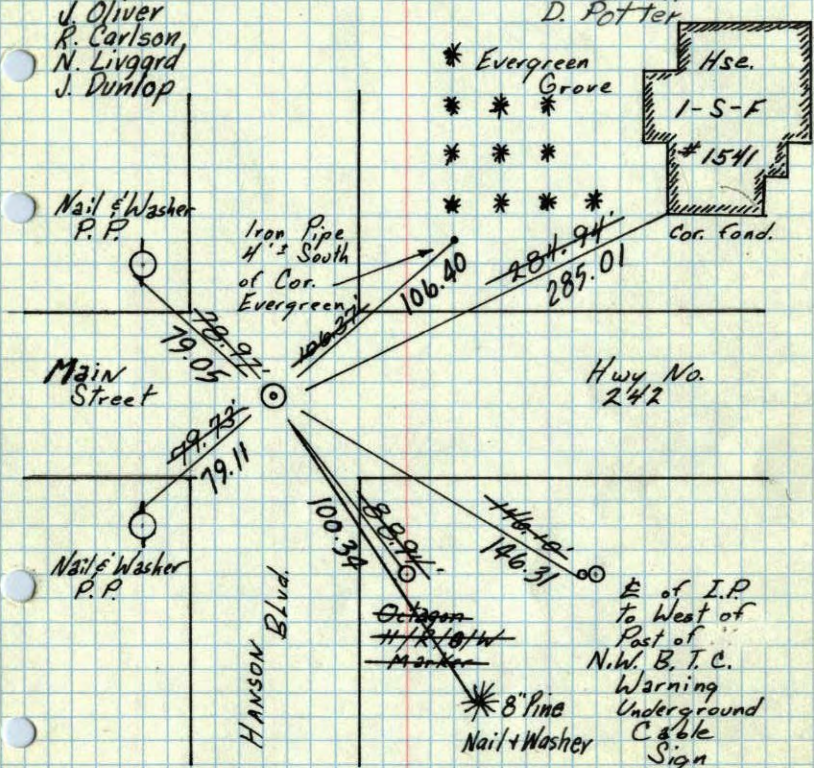 J. Oliver
R. Carlson
N. Livgard
J. Dunlop
D. Potter
Evergreen
Grove
Hse.
1-S-F
#1541
Cor. fond.
Nail & Washer
P.P.
Iron Pipe
4'± South
of Cor.
Evergreen
106.40
284.94'
285.01
78.97'
79.05
106.37'
Main
Street
Hwy No.
242
79.73'
79.11
100.34
88.94'
146.10'
146.31
Nail & Washer
P.P.
HANSON Blvd.
Octagon
H/R/O/W
Marker
8" Pine
Nail + Washer
℄ of I.P.
to West of
Post of
N.W. B. T. C.
Warning
Underground
Cable
Sign